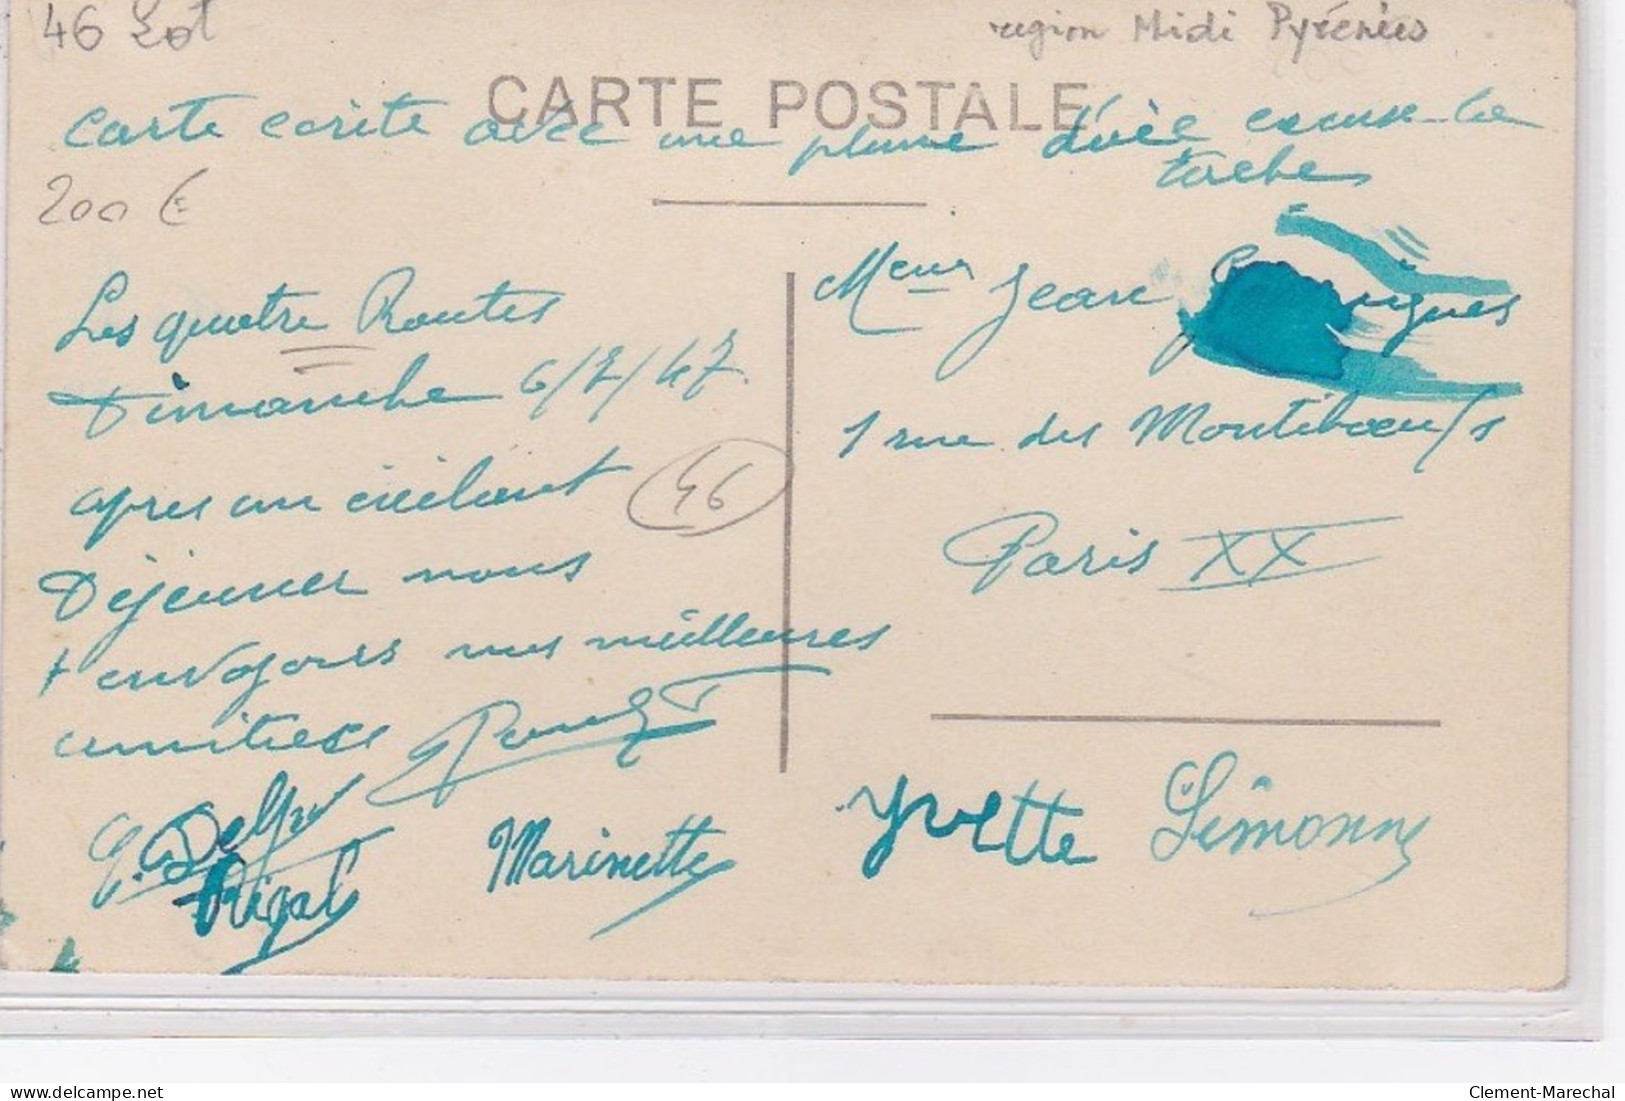 46 Lot
region Midi Pyrénées
CARTE POSTALE
carte ecrite avec une plume d'oie excuse la
taches
200 €
Les quatre Routes
Dimanche 6/7/47.
apres un excelent
46
Déjeuner nous
t envoyons nos meilleures
amities
Meur Jean
1 rue des Montiboeufs
Paris XX
Rigal
Marinette
Yvette
Simonne
delcampe.net
Clement-Marechal